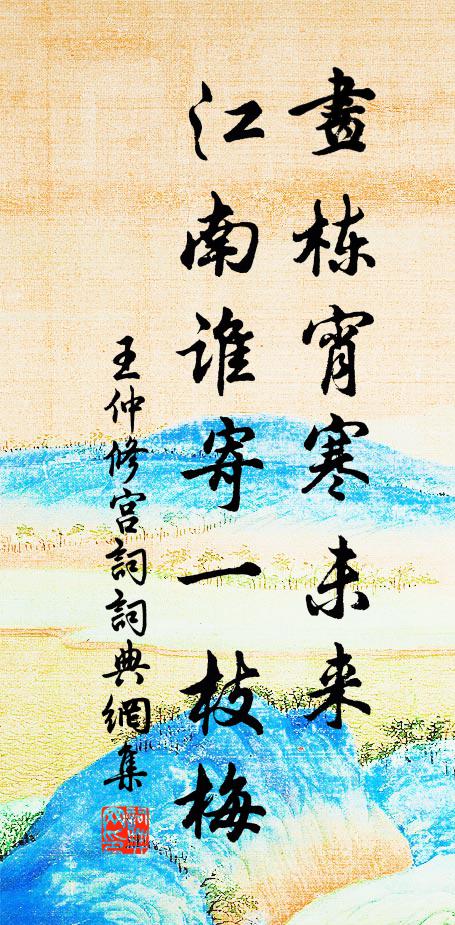 畫栋宵寒未来
江南谁寄一枝梅
王仲修宫詞詞典網集